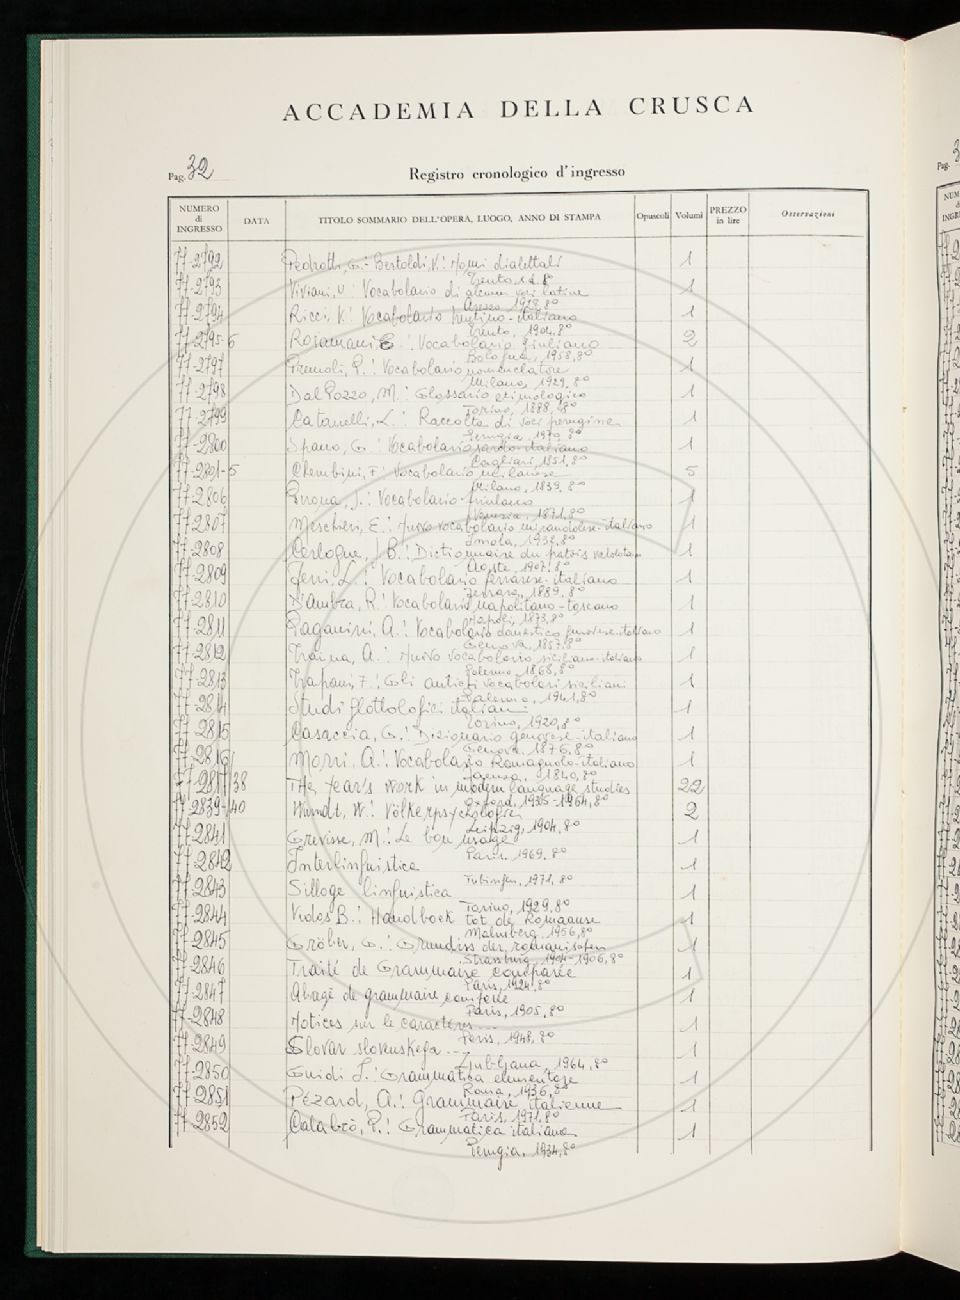 ACCADEMIA DELLA CRUSCA
Pag. 32
Registro cronologico d'ingresso
NUMERO di INGRESSO DATA TITOLO SOMMARIO DELL'OPERA, LUOGO, ANNO DI STAMPA Opuscoli Volumi PREZZO in lire Osservazioni
77-2792 Pedrotti, G.- Bertoldi, V.: Nomi dialettali 1
Trento, s.d. 8º
77-2793 Viviani, U: Vocabolario di alcune voci latine 1
Arezzo, 1928, 8º
77-2794 Ricci, V.: Vocabolario trentino-italiano 1
Trento, 1904, 8º
77-2795-6 Rosamani E.: Vocabolario Giuliano 2
Bologna, 1958, 8º
77-2797 Premoli, P.: Vocabolario nomenclatore 1
Milano, 1929, 8º
77-2798 Dal Pozzo, M.: Glossario etimologico 1
Torino, 1888, 8º
77-2799 Catanelli, L.: Raccolta di voci perugine 1
Perugia, 1970, 8º
77-2800 Spano, G.: Vocabolario sardo-italiano 1
Cagliari, 1851, 8º
77-2801-5 Cherubini, F.: Vocabolario milanese 5
Milano, 1839, 8º
77-2806 Pirona, J.: Vocabolario friulano 1
Venezia, 1871, 8º
77-2807 Meschieri, E.: Nuovo vocabolario mirandolese-italiano 1
Imola, 1932, 8º
77-2808 Cerlogne, J B.: Dictionnaire du patois valdotain 1
Aoste, 1907, 8º
77-2809 Ferri, L.: Vocabolario ferrarese-italiano 1
Ferrara, 1889, 8º
77-2810 D'Ambra, R.: Vocabolario napolitano-toscano 1
Napoli, 1873, 8º
77-2811 Paganini, A.: Vocabolario domestico genovese-italiano 1
Genova, 1857, 8º
77-2812 Traina, A.: Nuovo vocabolario siciliano-italiano 1
Palermo, 1868, 8º
77-2813 Trapani, F.: Gli antichi vocabolari siciliani 1
Palermo, 1941, 8º
77-2814 Studi glottologici italiani 1
Torino, 1920, 8º
77-2815 Casaccia, G.: Dizionario genovese-italiano 1
Genova, 1876, 8º
77-2816 Morri, A.: Vocabolario Romagnolo-italiano 1
Faenza, 1840, 8º
77-2817/38 The Year's work in modern language studies 22
Oxford, 1935-1964, 8º
77-2839-/40 Wundt, W.: Völkerpsychologie 2
Leipzig, 1904, 8º
77-2841 Grevisse, M.: Le bon usage 1
Paris, 1969, 8º
77-2842 Interlinguistica 1
Tubingen, 1971, 8º
77-2843 Silloge linguistica 1
Torino, 1929, 8º
77-2844 Vidos B.: Handboek tot de Romaanse 1
Malmberg, 1956, 8º
77-2845 Gröber, G.: Grundiss der romanischen 1
Strassburg, 1904-1906, 8º
77-2846 Traité de Grammaire comparée 1
Paris, 1924, 8º
77-2847 Abregé de grammaire comparée 1
Paris, 1905, 8º
77-2848 Notices sur le caractères... 1
Paris, 1948, 8º
77-2849 Slovar slovenskega ... 1
Ljubljana, 1964, 8º
77-2850 Guidi I.: Grammatica elementare 1
Roma, 1936, 8º
77-2851 Pézard, A.: Grammaire italienne 1
Paris, 1971, 8º
77-2852 Catabrò, P.: Grammatica italiana 1
Perugia, 1934, 8º